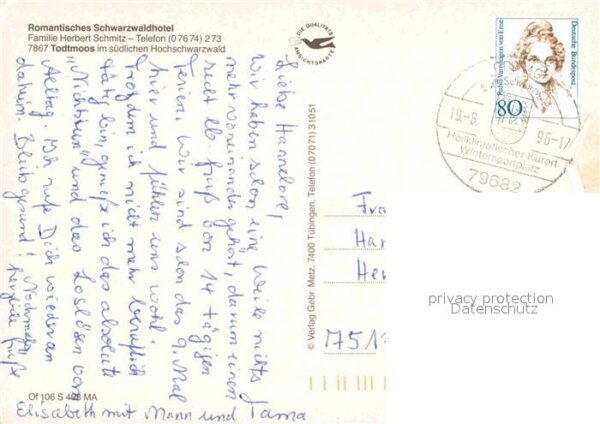 Romantisches Schwarzwaldhotel
Familie Herbert Schmitz – Telefon (0 76 74) 2 73
7867 Todtmoos im südlichen Hochschwarzwald
DIE QUALITÄTS
ANSICHTSKARTE
Deutsche Bundespost
Rahel Varnhagen von Ense
80
19.-8. 96-17
Heilklimatischer Kurort
Wintersportplatz
79682
Liebe Hannelore,
wir haben schon eine Weile nichts
mehr voneinander gehört, darum einen
recht lb Gruß von 14 tägigen
Ferien. Wir sind schon das 9. Mal
hier und fühlen uns wohl.
Trotzdem ich nicht mehr beruflich
tätig bin, genieße ich das absolute
"Nichtstun" und das Loslösen vom
Alltag. Ich rufe Dich wieder an
daheim. Bleib gesund! Nochmals
herzliche Grüße
Elisabeth mit Mann und Tama
© Verlag Gebr. Metz, 7400 Tübingen, Telefon (07071) 31051
Fra
Han
He
7513
privacy protection
Datenschutz
Of 106 S 408 MA